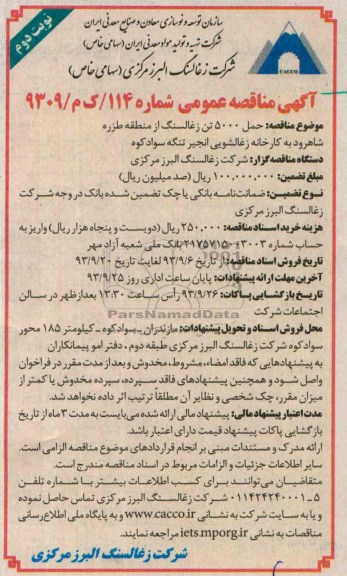 نوبت دوم
سازمان توسعه و نوسازی معادن و صنایع معدنی ایران
شرکت تهیه و تولید مواد معدنی ایران (سهامی خاص)
شرکت زغالسنگ البرز مرکزی (سهامی خاص)
CACCO
آگهی مناقصه عمومی شماره ۱۱۴/ک م/۹۳۰۹
موضوع مناقصه: حمل ۵۰۰۰ تن زغالسنگ از منطقه طزره
شاهرود به کارخانه زغالشویی انجیر تنگه سوادکوه
دستگاه مناقصه گزار: شرکت زغالسنگ البرز مرکزی
مبلغ تضمین: ۱۰۰,۰۰۰,۰۰۰ ریال (صد میلیون ریال)
نوع تضمین: ضمانت‌نامه بانکی یا چک تضمین شده بانک در وجه شرکت
زغالسنگ البرز مرکزی
هزینه خرید اسناد مناقصه: ۲۵۰,۰۰۰ ریال (دویست و پنجاه هزار ریال) واریز به
حساب شماره ۲۱۷۵۷۱۵۰۰۳۰۰۳ بانک ملی شعبه آزاد مهر
تاریخ فروش اسناد مناقصه: از تاریخ ۹۳/۹/۶ لغایت تاریخ ۹۳/۹/۲۰
آخرین مهلت ارائه پیشنهادات: پایان ساعت اداری روز ۹۳/۹/۲۵
تاریخ بازگشایی پاکات: ۹۳/۹/۲۶ رأس ساعت ۱۳:۳۰ بعدازظهر در سالن
اجتماعات شرکت
ParsNamadData
محل فروش اسناد و تحویل پیشنهادات: مازندران ـ سوادکوه ـ کیلومتر ۱۸۵ محور
سوادکوه شرکت زغالسنگ البرز مرکزی طبقه دوم، دفتر امو پیمانکاران
به پیشنهادهایی که فاقد امضاء، مشروط، مخدوش و بعد از مدت مقرر در فراخوان
واصل شود و همچنین پیشنهادهای فاقد سپرده، سپرده مخدوش یا کمتر از
میزان مقرر، چک شخصی و نظایر آن مطلقاً ترتیب اثر داده نخواهد شد.
مدت اعتبار پیشنهاد مالی: پیشنهاد مالی ارائه شده می‌بایست به مدت ۳ ماه از تاریخ
بازگشایی پاکات پیشنهاد قیمت دارای اعتبار باشد.
ارائه مدرک و مستندات مبنی بر انجام قراردادهای موضوع مناقصه الزامی است.
سایر اطلاعات جزئیات و الزامات مربوط در اسناد مناقصه مندرج است.
متقاضیان می‌توانند برای کسب اطلاعات بیشتر با شماره تلفن
۵ـ۰۱۱۴۲۴۲۴۰۰۱ شرکت زغالسنگ البرز مرکزی تماس حاصل نموده
و یا به سایت شرکت به نشانی www.cacco.ir و به پایگاه ملی اطلاع‌رسانی
مناقصات به نشانی iets.mporg.ir مراجعه نمایند.
شرکت زغالسنگ البرز مرکزی